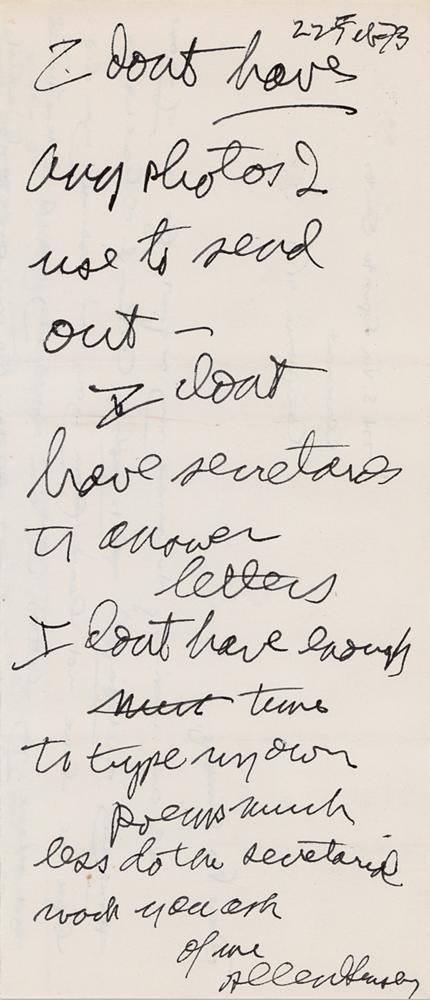 22 Feb 73
I dont have
any photos I
use to send
out –
I dont
have secretaries
to answer
letters
I dont have enough
time
to type my own
poems much
less do the secretarial
work you ask
of me
Allen Ginsberg